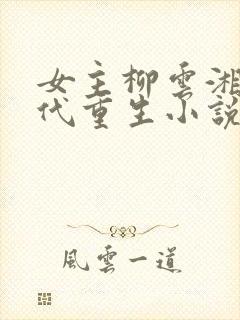 女主柳雲湘
代重生小說
風雲一道